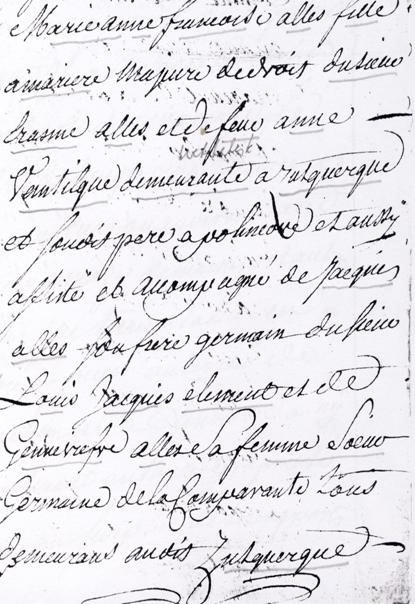 Marie anne francoise alles fille
a mariere majure de droit du sieur
Erasme alles et de feue anne
demeurante a Zutquerque
et son dit pere a polincove et aussy
assisté et accompagné de Jacques
alles son frere germain du sieur
Louis Jacques element et de
Genneviefve alles sa femme soeur
Germaine de la Comparante tous
demeurans audit Zutquerque